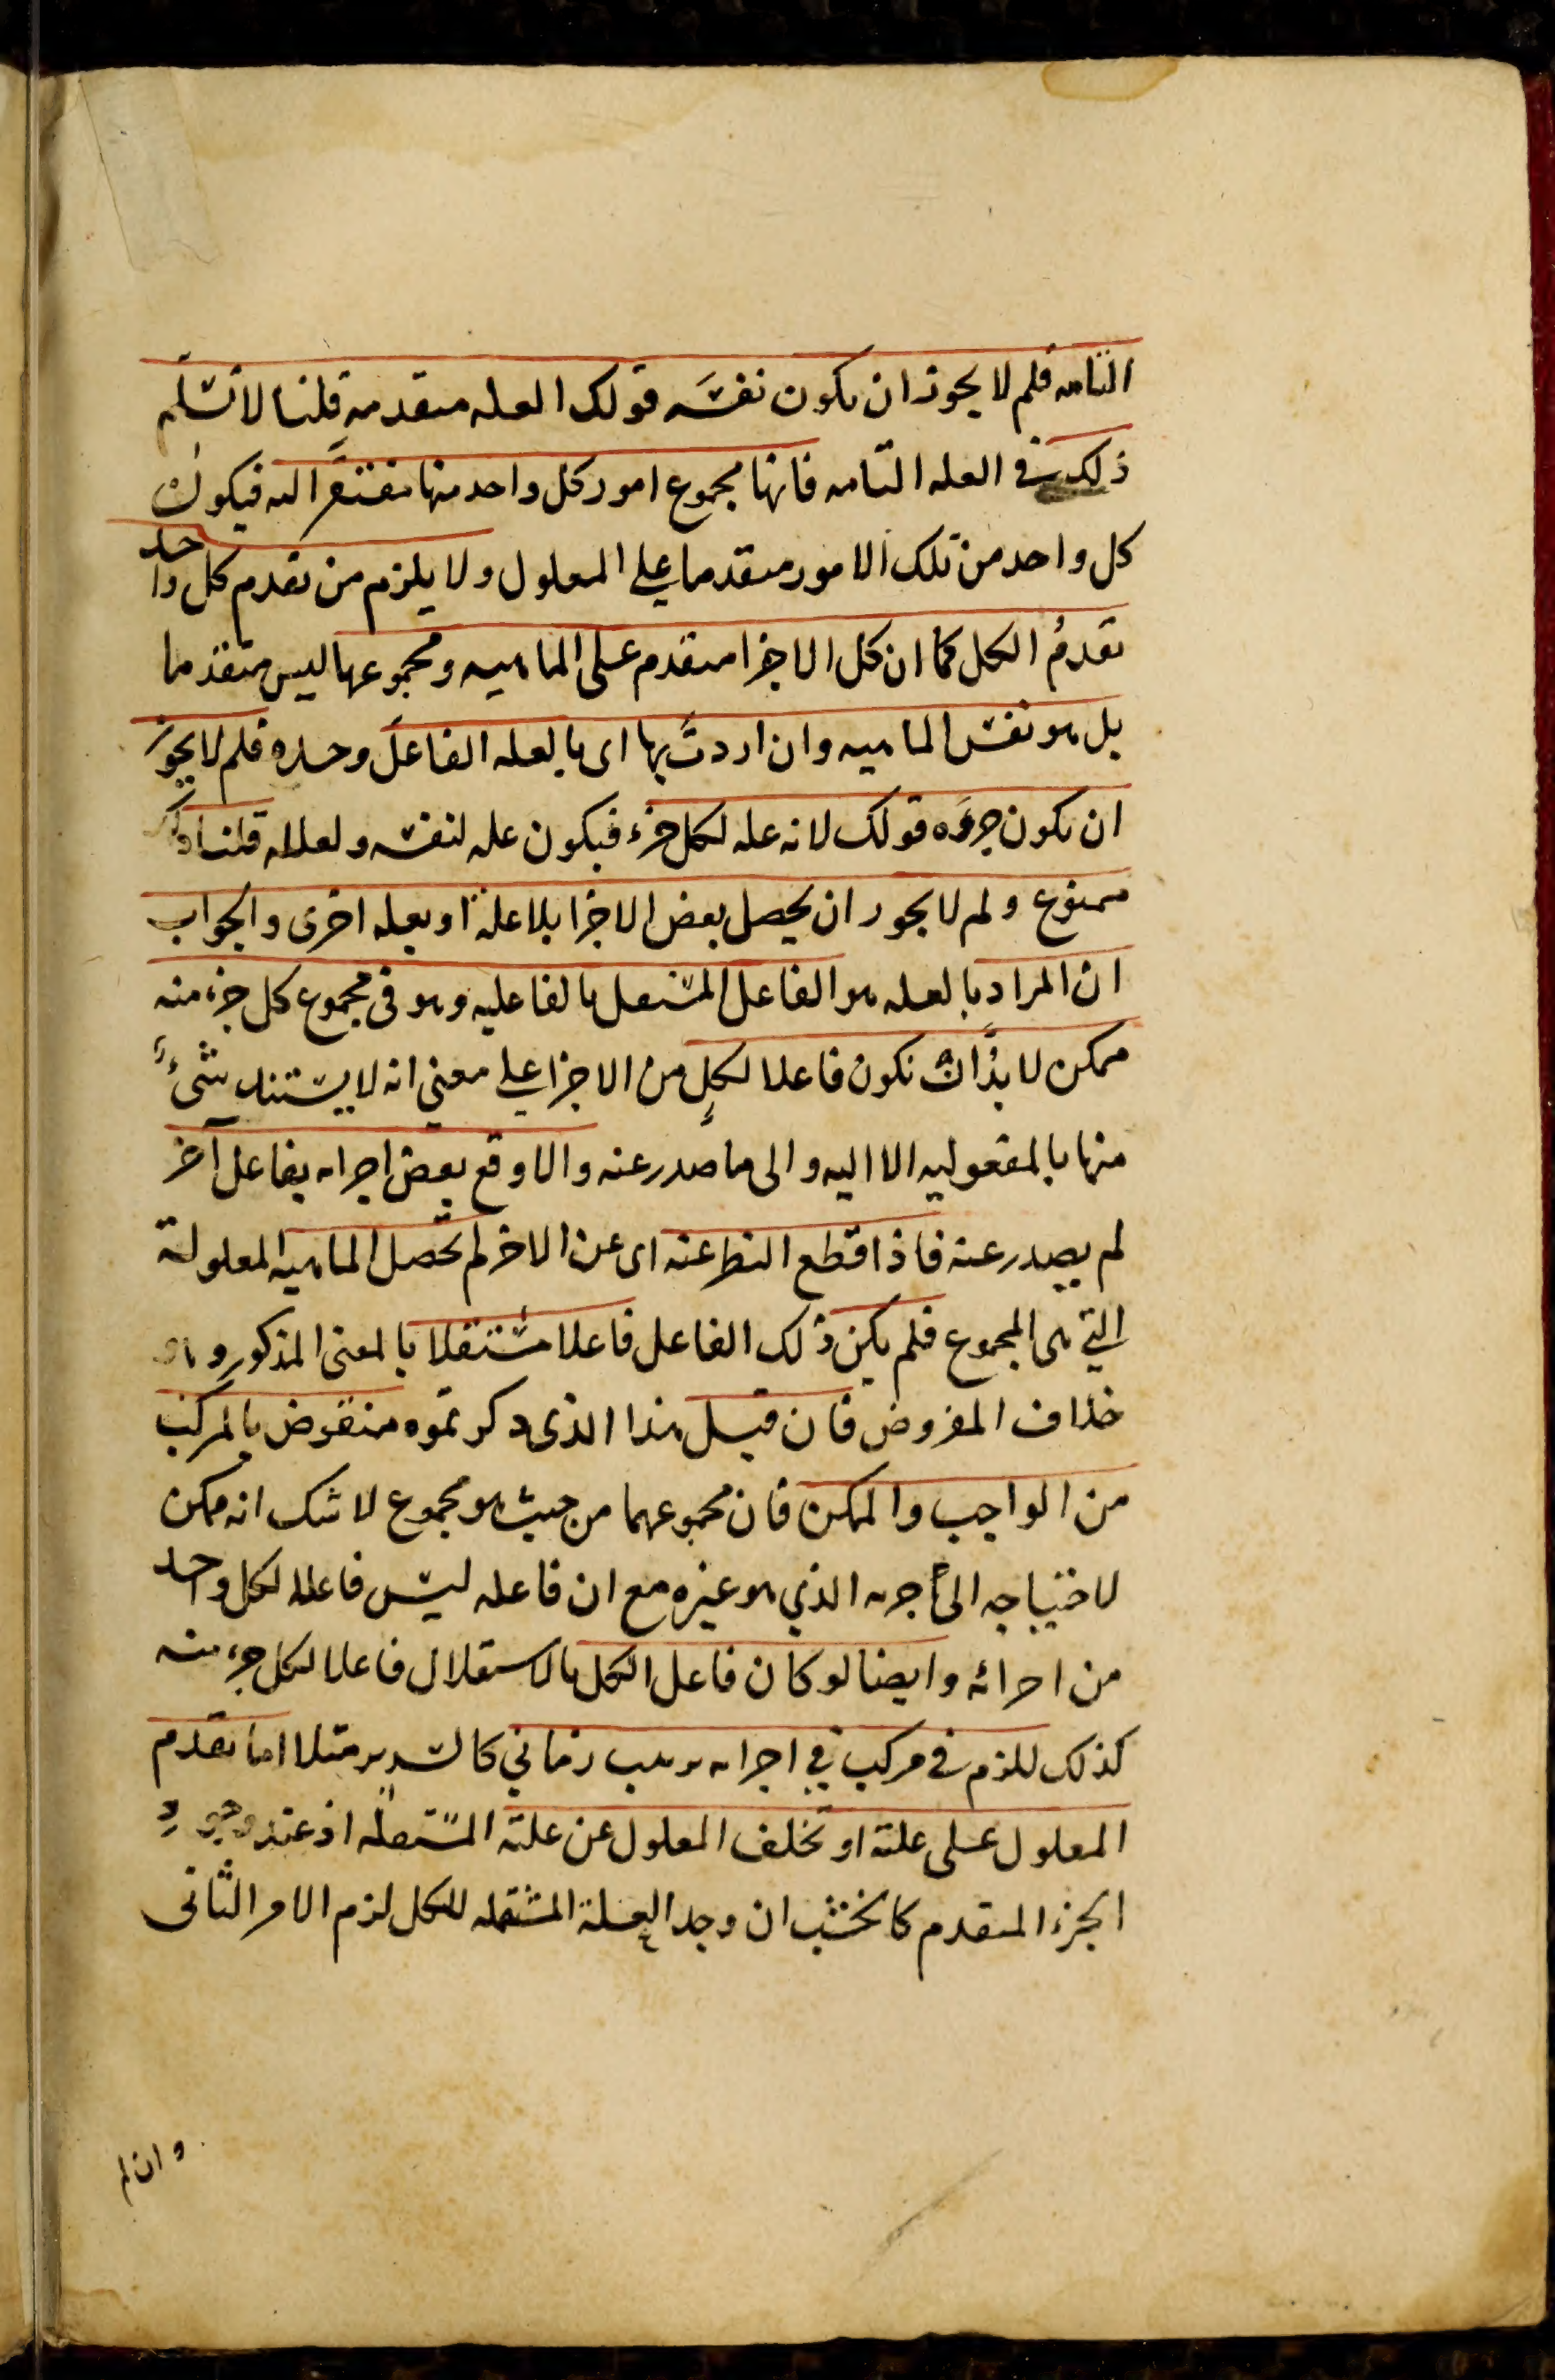 التامه فلم لا يجوز ان يكون نفسه قولك العله متقدمه قلنا لا نسلم
ذلك في العله التامه فانها مجموع امور كل واحد منها مفتقر اليه فيكون
كل واحد من تلك الامور متقدما على المعلول ولا يلزم من تقدم كل واحد
تقدم الكل كما ان كل الاجزا متقدم على الماهيه ومجموعها ليس متقدما
بل هو نفس الماهيه وان اردت بها اى بالعله الفاعل وحده فلم لا يجوز
ان يكون جزءه قولك لانه عله لكل جزء فيكون عله لنفسه ولعلله قلنا
ممنوع ولم لا يجوز ان يحصل بعض الاجزا بلا علة او بعله اخرى والجواب
ان المراد بالعله هو الفاعل المستقل بالفاعليه وهو فى مجموع كل جزء منه
ممكن لا بد ان يكون فاعلا لكل من الاجزا على معنى انه لا يستند شىء
منها بالمفعوليه الا اليه والى ما صدر عنه والا وقع بعض اجزاه بفاعل آخر
لم يصدر عنه فاذا قطع النظر عنه اى عن الاخر لم تحصل الماهيه المعلولة
التي هى المجموع فلم يكن ذلك الفاعل فاعلا مستقلا بالمعنى المذكور
خلاف المفروض فان قيل هذا الذى ذكرتموه منقوض بالمركب
من الواجب والممكن فان مجموعهما من حيث هو مجموع لا شك انه ممكن
لاحتياجه الى جزءه الذي هو غيره مع ان فاعله ليس فاعلا لكل واحد
من اجزائه وايضا لو كان فاعل الكل بالاستقلال فاعلا لكل جزء منه
كذلك للزم في مركب في اجزاه ترتيب زماني كالسرير مثلا اما تقدم
المعلول على علته او تخلف المعلول عن علته المستقله اذ عند وجود
الجزء المتقدم كالخشب ان وجد العلة المستقله للكل لزم الامر الثانى
وان لم